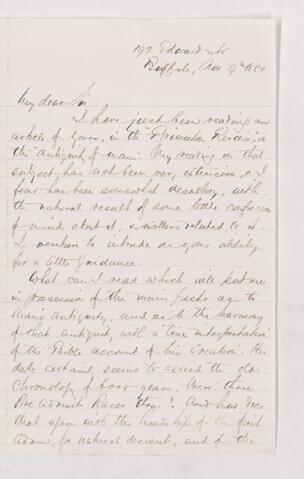 192 Edward St
Buffalo, Nov 9th 1880
My dear Sir
I have just been reading an
article of yours, in the "Princeton Review", on
the "Antiquity of man". My reading on that
subject has not been very extensive, & I
fear has been somewhat desultory, with
the natural result of some little confusion
of mind about it, & matters related to it.
I venture to intrude on your ability
for a little guidance.
What can I read which will put me
in possession of the main facts as to
Man's antiquity, and as to the harmony
of that antiquity with a true interpretation
of the Bible account of his Creation. His
date certainly seems to exceed the old
chronology of 6000 years. Were there
Pre Adamite Races then? And how does
that agree with the headship of the first
Adam, for natural descent, and of the